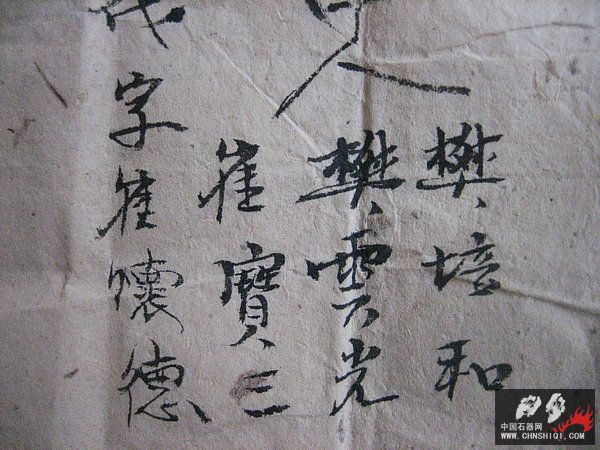 人
樊培和
樊雲光
崔寶三
字崔懷德
中国石器网
WWW.CHNSHIQI.COM